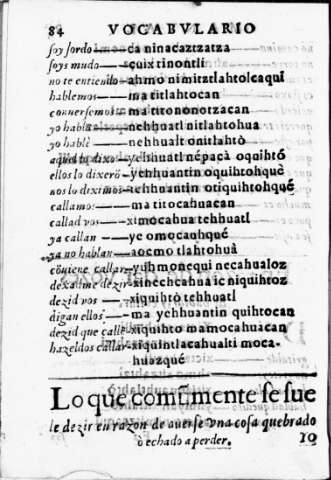 84 VOCABVLARIO
soy sordo — ca ninacaztzatza
soys mudo — çuix tinontli
no te entiendo — ahmo nimitztlahtolcaqui
hablemos — ma titlahtocan
conuersemos — ma titononotzacan
yo hablo — nehhoatl nitlahtohua
yo hablè — nehhualt onitlahtò
aquel lo dixo — yehhuatl nepacà oquihtó
ellos lo dixerõ — yehhuantin oquihtohqué
nos lo diximos — tehhuantin otiquihtohqué
callamos — ma titocahuacan
callad vos — ximocahua tehhuatl
ya callan — ye omocauhqué
ya no hablan — aocmo tlahtohuà
cõuiene callar — yuhmonequi necahualoz
dexadme dezir — xinechcahua ic niquihtoz
dezid vos — xiquihtò tehhuatl
digan ellos — ma yehhuantin quihtocan
dezid que calle — xiquihto mamocahuacan
hazeldos callar — xiquintlacahualti moca-
huazqué
Lo que comũmente se sue
le dezir en razon de auerse vna cosa quebrado
o echado a perder.
10